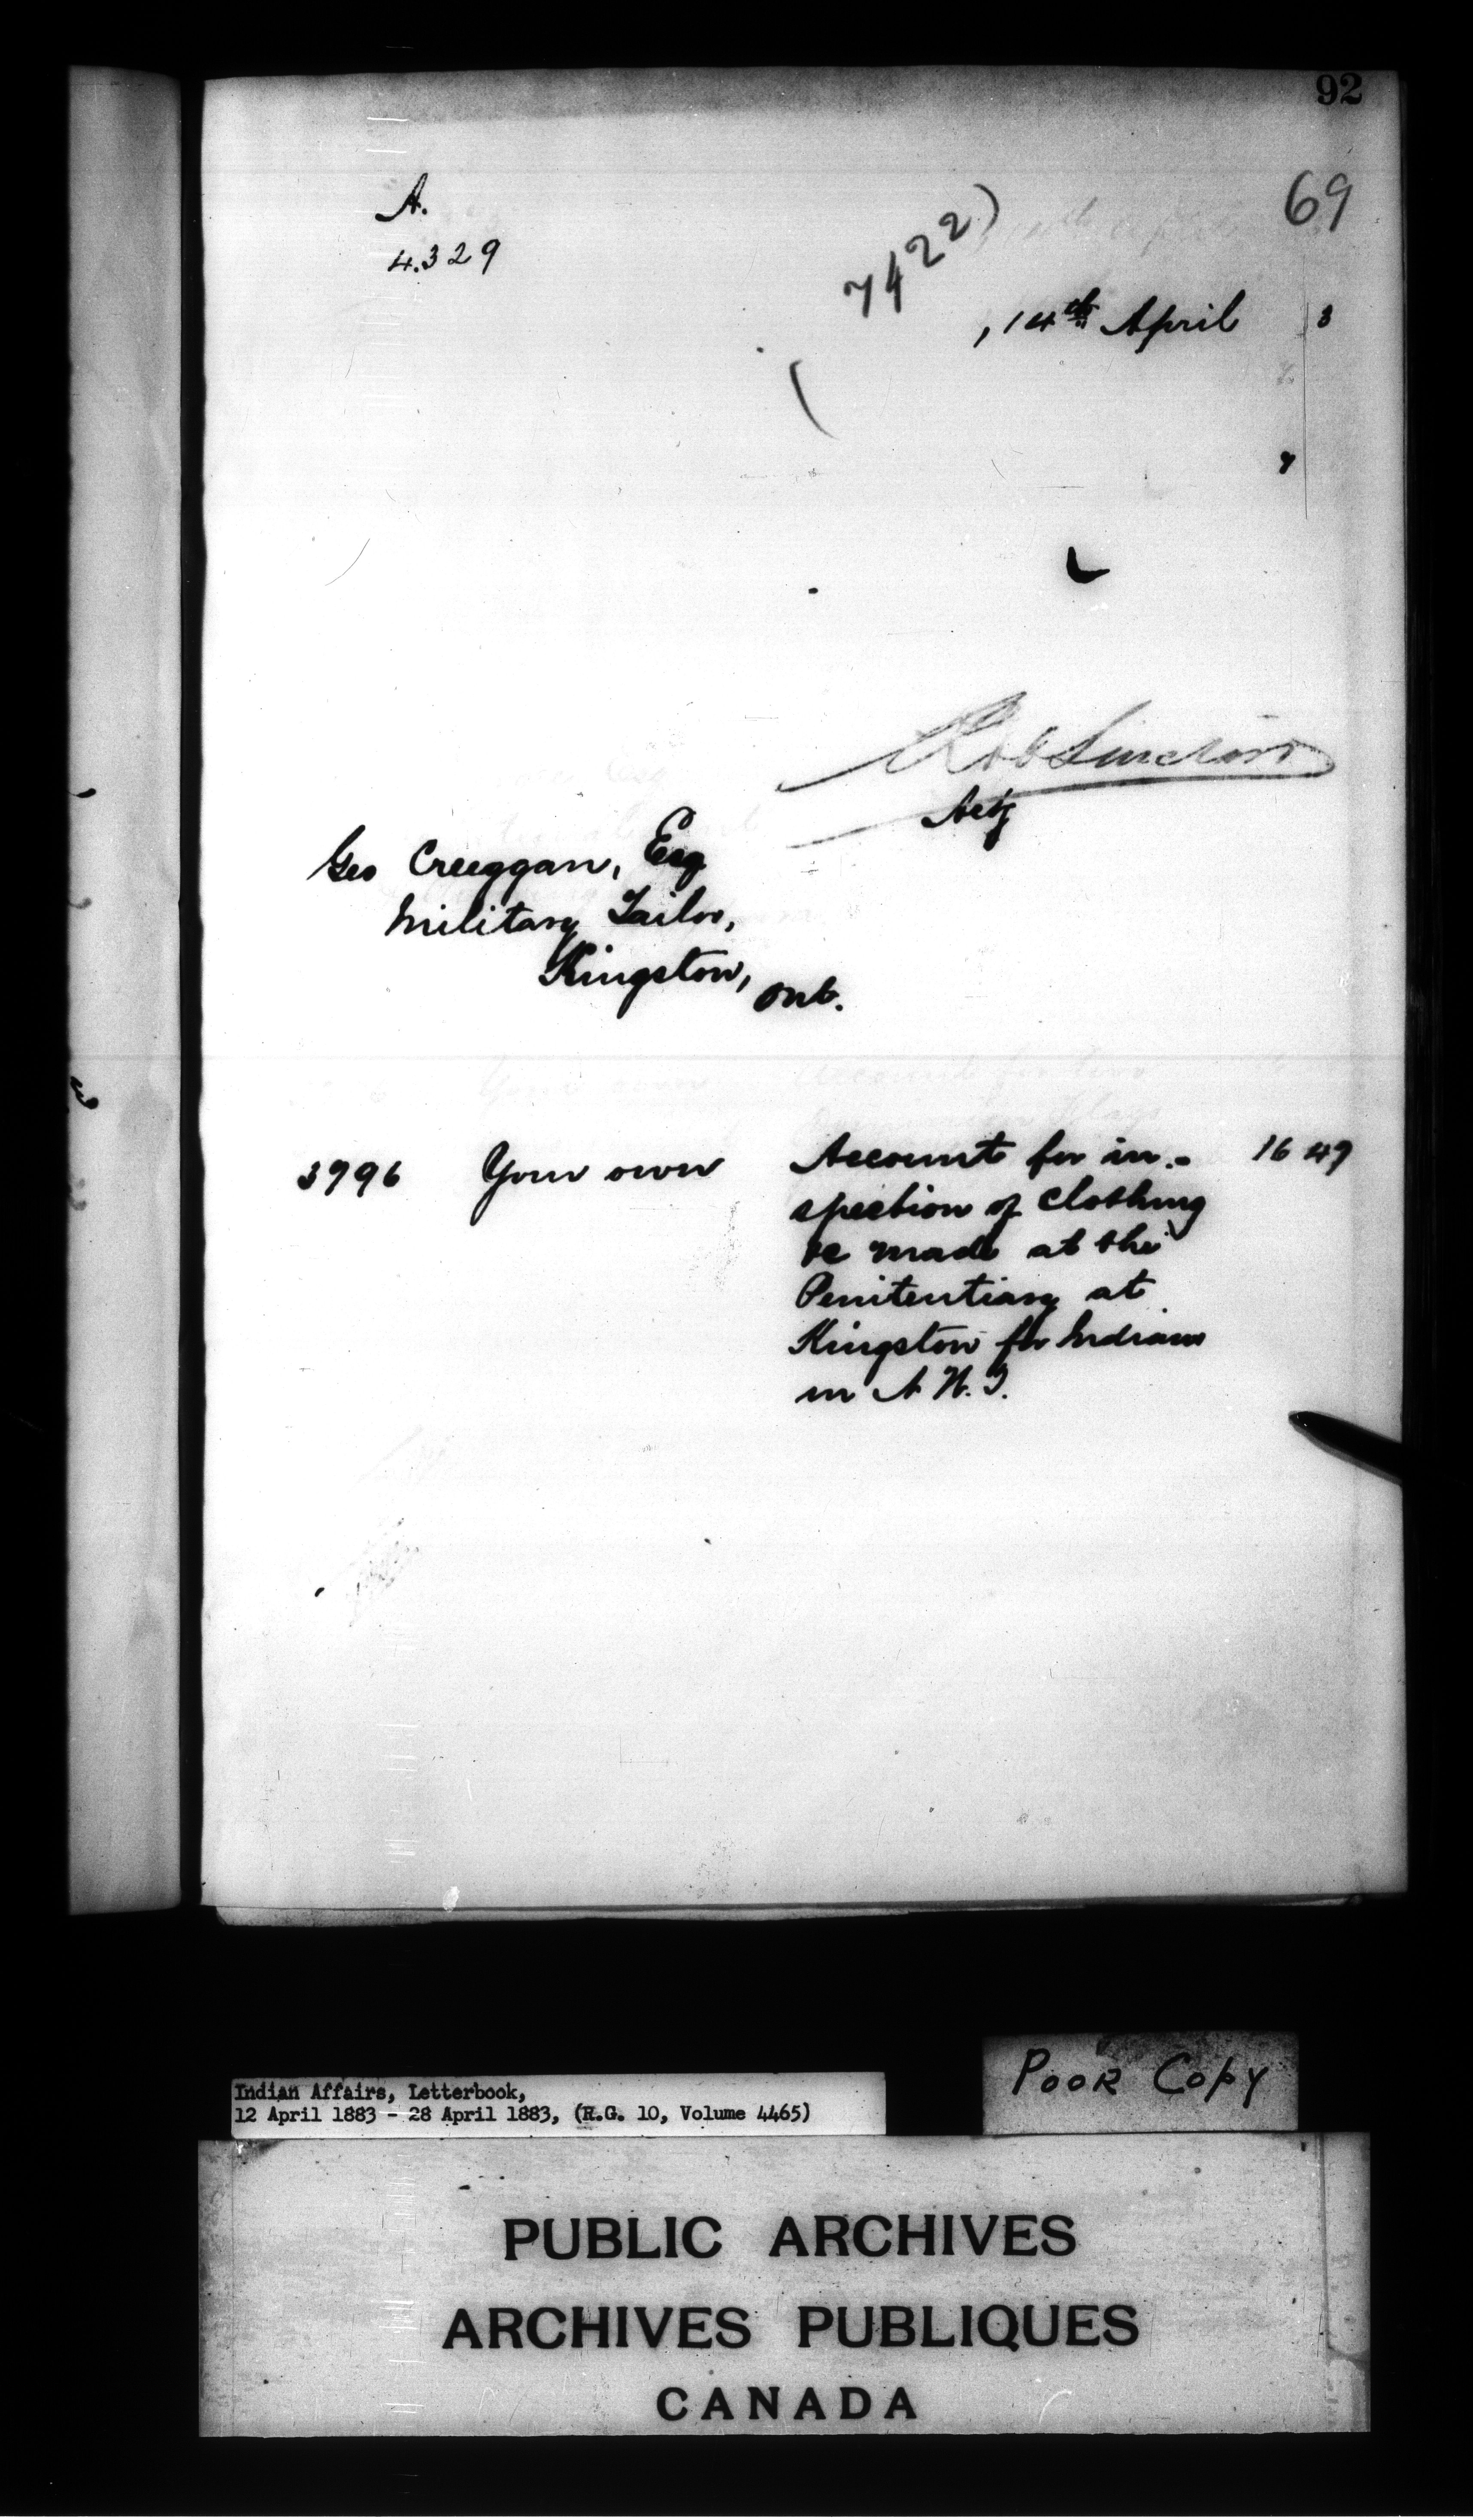 92
69
A.
4.329
7422)
, 14th April 3
Robt Sinclair
Actg
Geo Creeggan, Esq
Military Tailor,
Kingston, Ont.
3996 Your own Account for in- 16 49
spection of Clothing
&c made at the
Penitentiary at
Kingston for Indians
in N. W. T.
Poor Copy
Indian Affairs, Letterbook,
12 April 1883 - 28 April 1883, (R.G. 10, Volume 4465)
PUBLIC ARCHIVES
ARCHIVES PUBLIQUES
CANADA